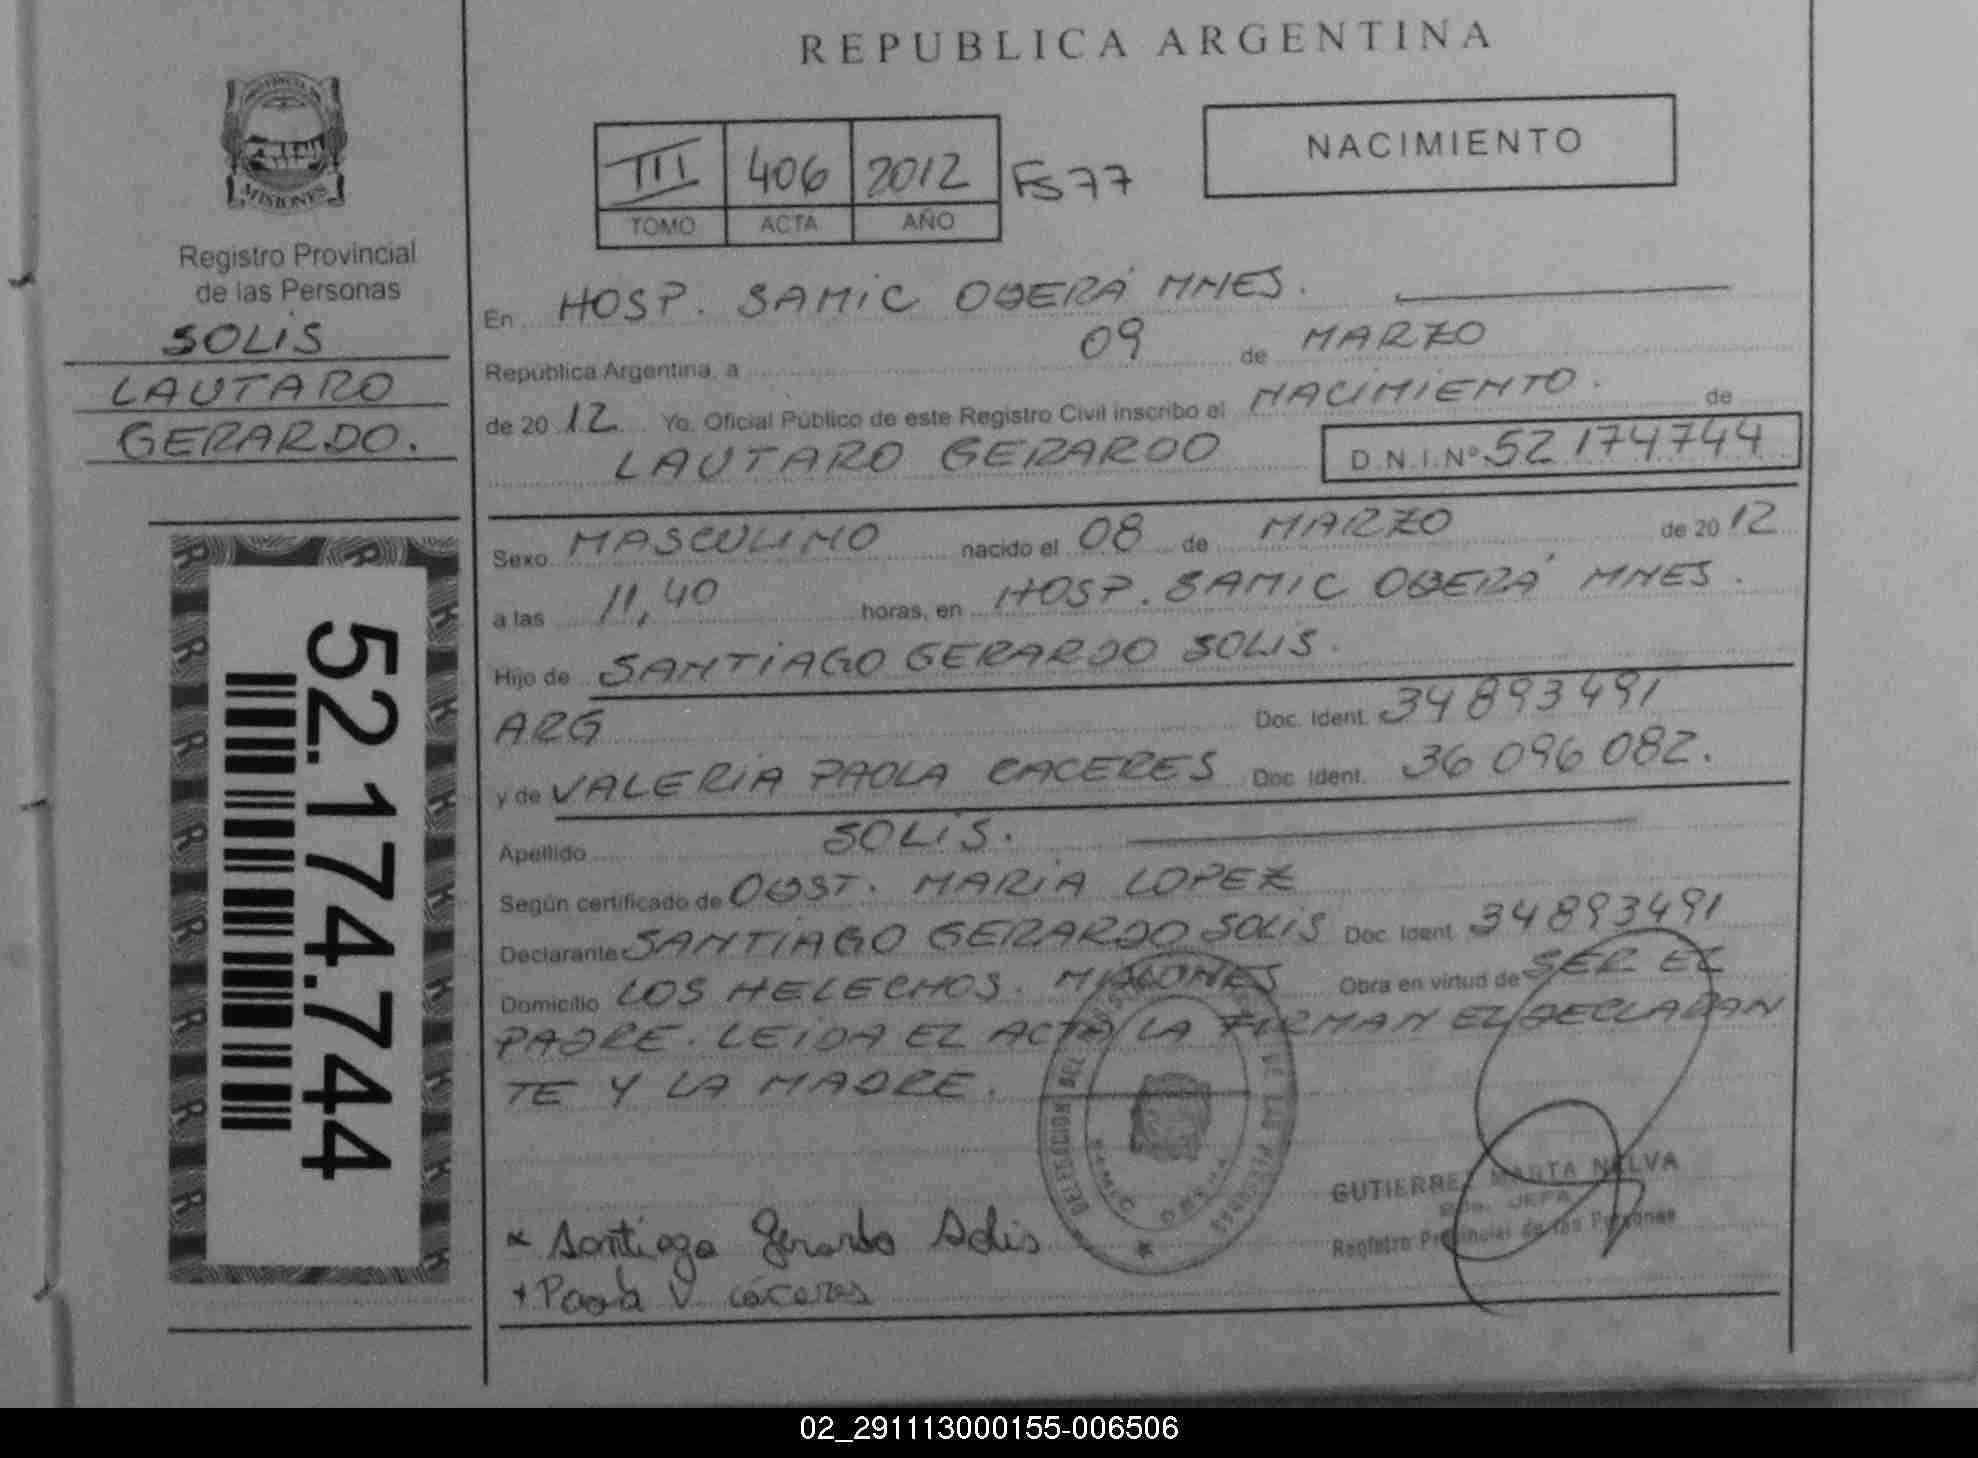 REPUBLICA ARGENTINA
NACIMIENTO
III 406 2012 Fs 77
TOMO ACTA AÑO
PROVINCIA DE
MISIONES
Registro Provincial
de las Personas
SOLIS
LAUTARO
GERARDO.
52.174.744
En HOSP. SAMIC OBERÁ MNES.
República Argentina, a 09 de MARZO
de 2012 Yo, Oficial Público de este Registro Civil inscribo el NACIMIENTO. de
LAUTARO GERARDO D.N.I.Nº 52 174744
Sexo MASCULINO nacido el 08 de MARZO de 2012
a las 11,40 horas, en HOSP. SAMIC OBERÁ MNES.
Hijo de SANTIAGO GERARDO SOLIS.
ARG Doc. Ident. 34 893491
y de VALERIA PAOLA CACERES Doc. Ident. 36 096 082.
Apellido SOLIS.
Según certificado de OBST. MARIA LOPEZ
Declarante SANTIAGO GERARDO SOLIS Doc. Ident. 34 893491
Domicilio LOS HELECHOS. MISIONES Obra en virtud de SER EL
PADRE. LEIDA EL ACTA LA FIRMAN EL DECLARAN
TE Y LA MADRE.
GUTIERREZ MARTA NELVA
JEFA
Registro Provincial de las Personas
* Santiago Gerardo Solis
* Paola V. cáceres
02_291113000155-006506